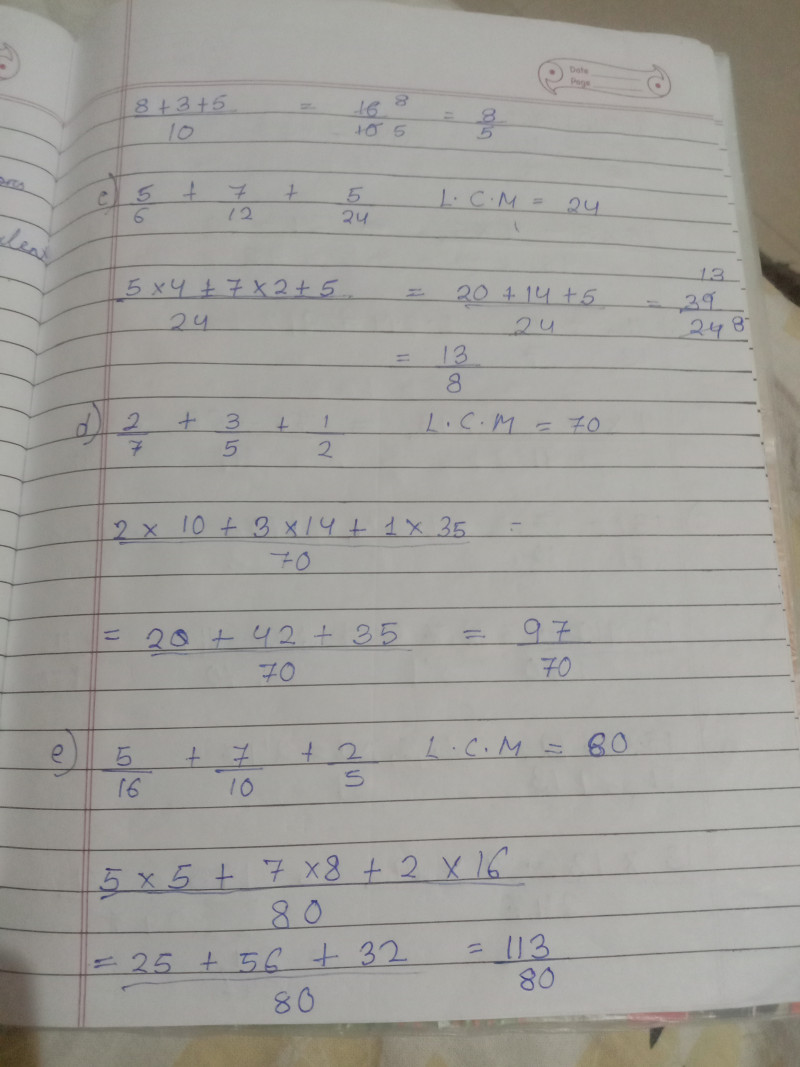 Date
Page
8+3+5 / 10 = 16 8 / 10 5 = 8 / 5
c) 5/6 + 7/12 + 5/24 L.C.M = 24
5×4+7×2+5 / 24 = 20+14+5 / 24 = 13 39 / 24 8
= 13 / 8
d) 2/7 + 3/5 + 1/2 L.C.M = 70
2 × 10 + 3 ×14 + 1 × 35 / 70 =
= 20 + 42 + 35 / 70 = 97 / 70
e) 5/16 + 7/10 + 2/5 L.C.M = 80
5 × 5 + 7 ×8 + 2 × 16 / 80
= 25 + 56 + 32 / 80 = 113 / 80